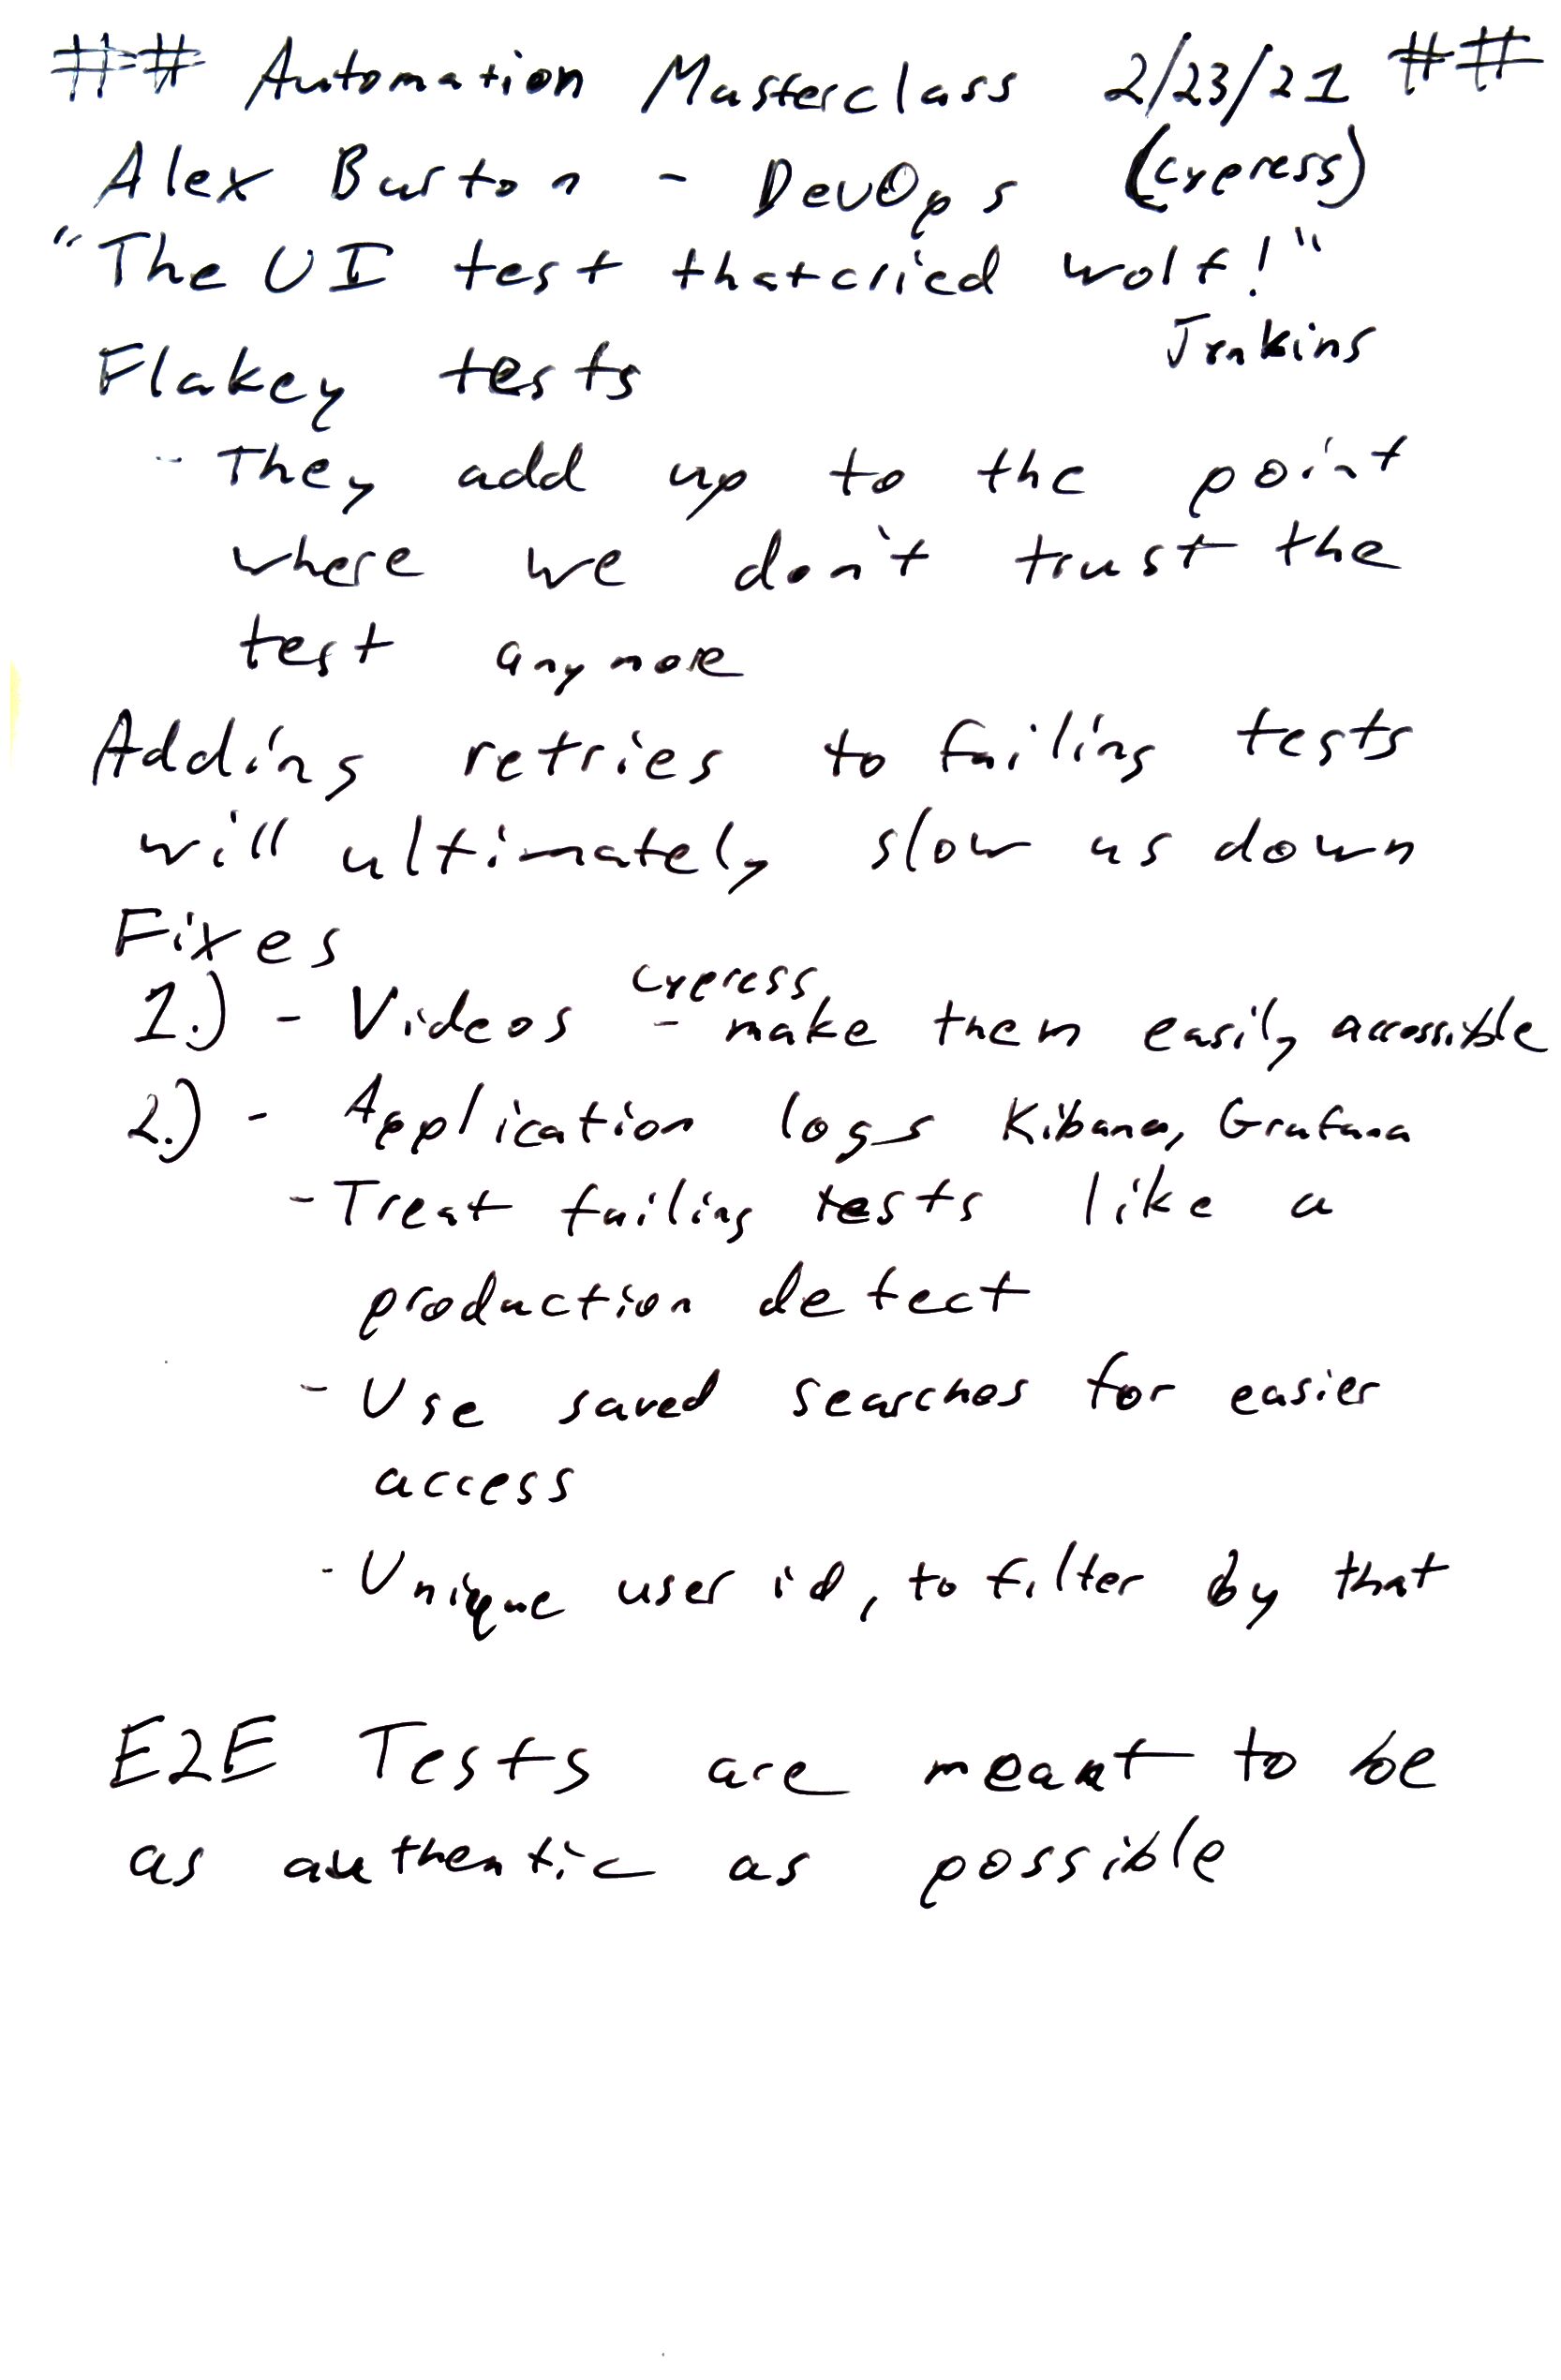 ## Automation Masterclass 2/23/21 ##
Alex Burton - DevOps (Cypress)
"The UI test that cried wolf!"
Jenkins
Flakey tests
- They add up to the point
where we don't trust the
test anymore
Adding retries to failing tests
will ultimately slow us down
Fixes
cypress
1.) - Videos - make them easily accessible
2.) - Application logs Kibana, Grafana
- Treat failing tests like a
production defect
- Use saved searches for easier
access
- Unique user id, to filter by that
E2E Tests are meant to be
as authentic as possible